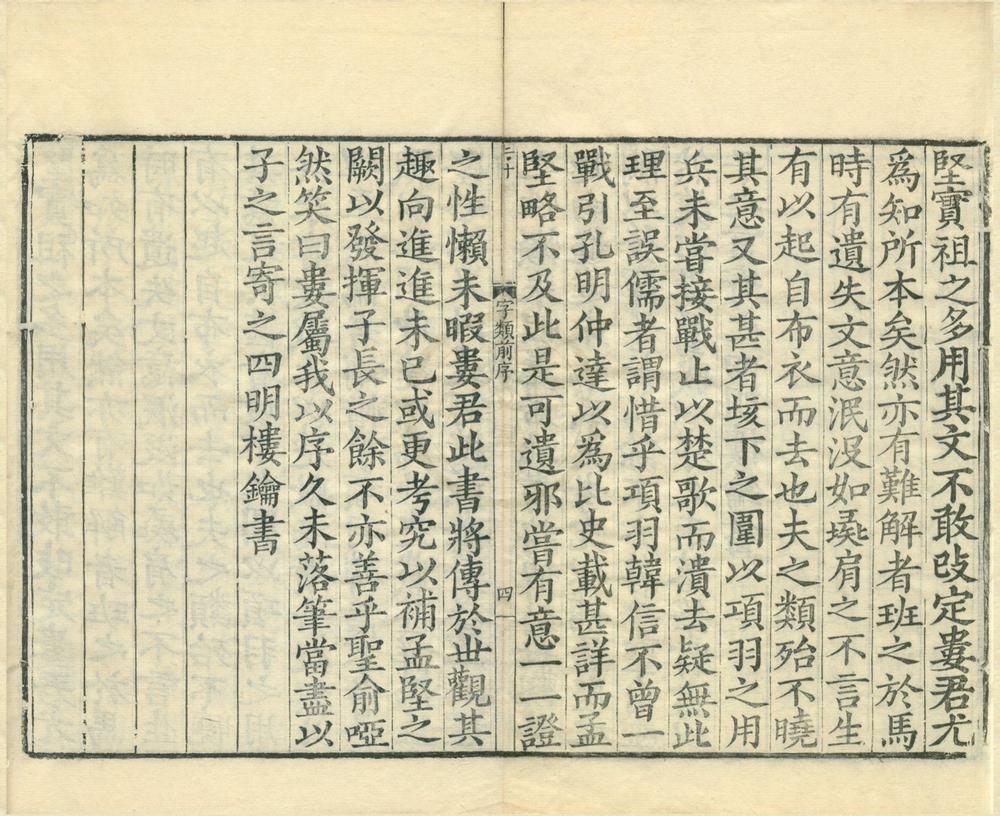 堅實祖之多用其文不敢改定婁君尤
爲知所本矣然亦有難解者班之於馬
時有遺失文意泯没如彘肩之不言生
有以起自布衣而去也夫之類殆不曉
其意又其甚者垓下之圍以項羽之用
兵未嘗接戰止以楚歌而潰去疑無此
理至誤儒者謂惜乎項羽韓信不曾一
戰引孔明仲達以爲比史載甚詳而孟
堅略不及此是可遺邪嘗有意一一證
字類前序
四
之性懶未暇婁君此書將傳於世觀其
趣向進進未已或更考究以補孟堅之
闕以發揮子長之餘不亦善乎聖俞啞
然笑曰婁屬我以序久未落筆當盡以
子之言寄之四明樓鑰書